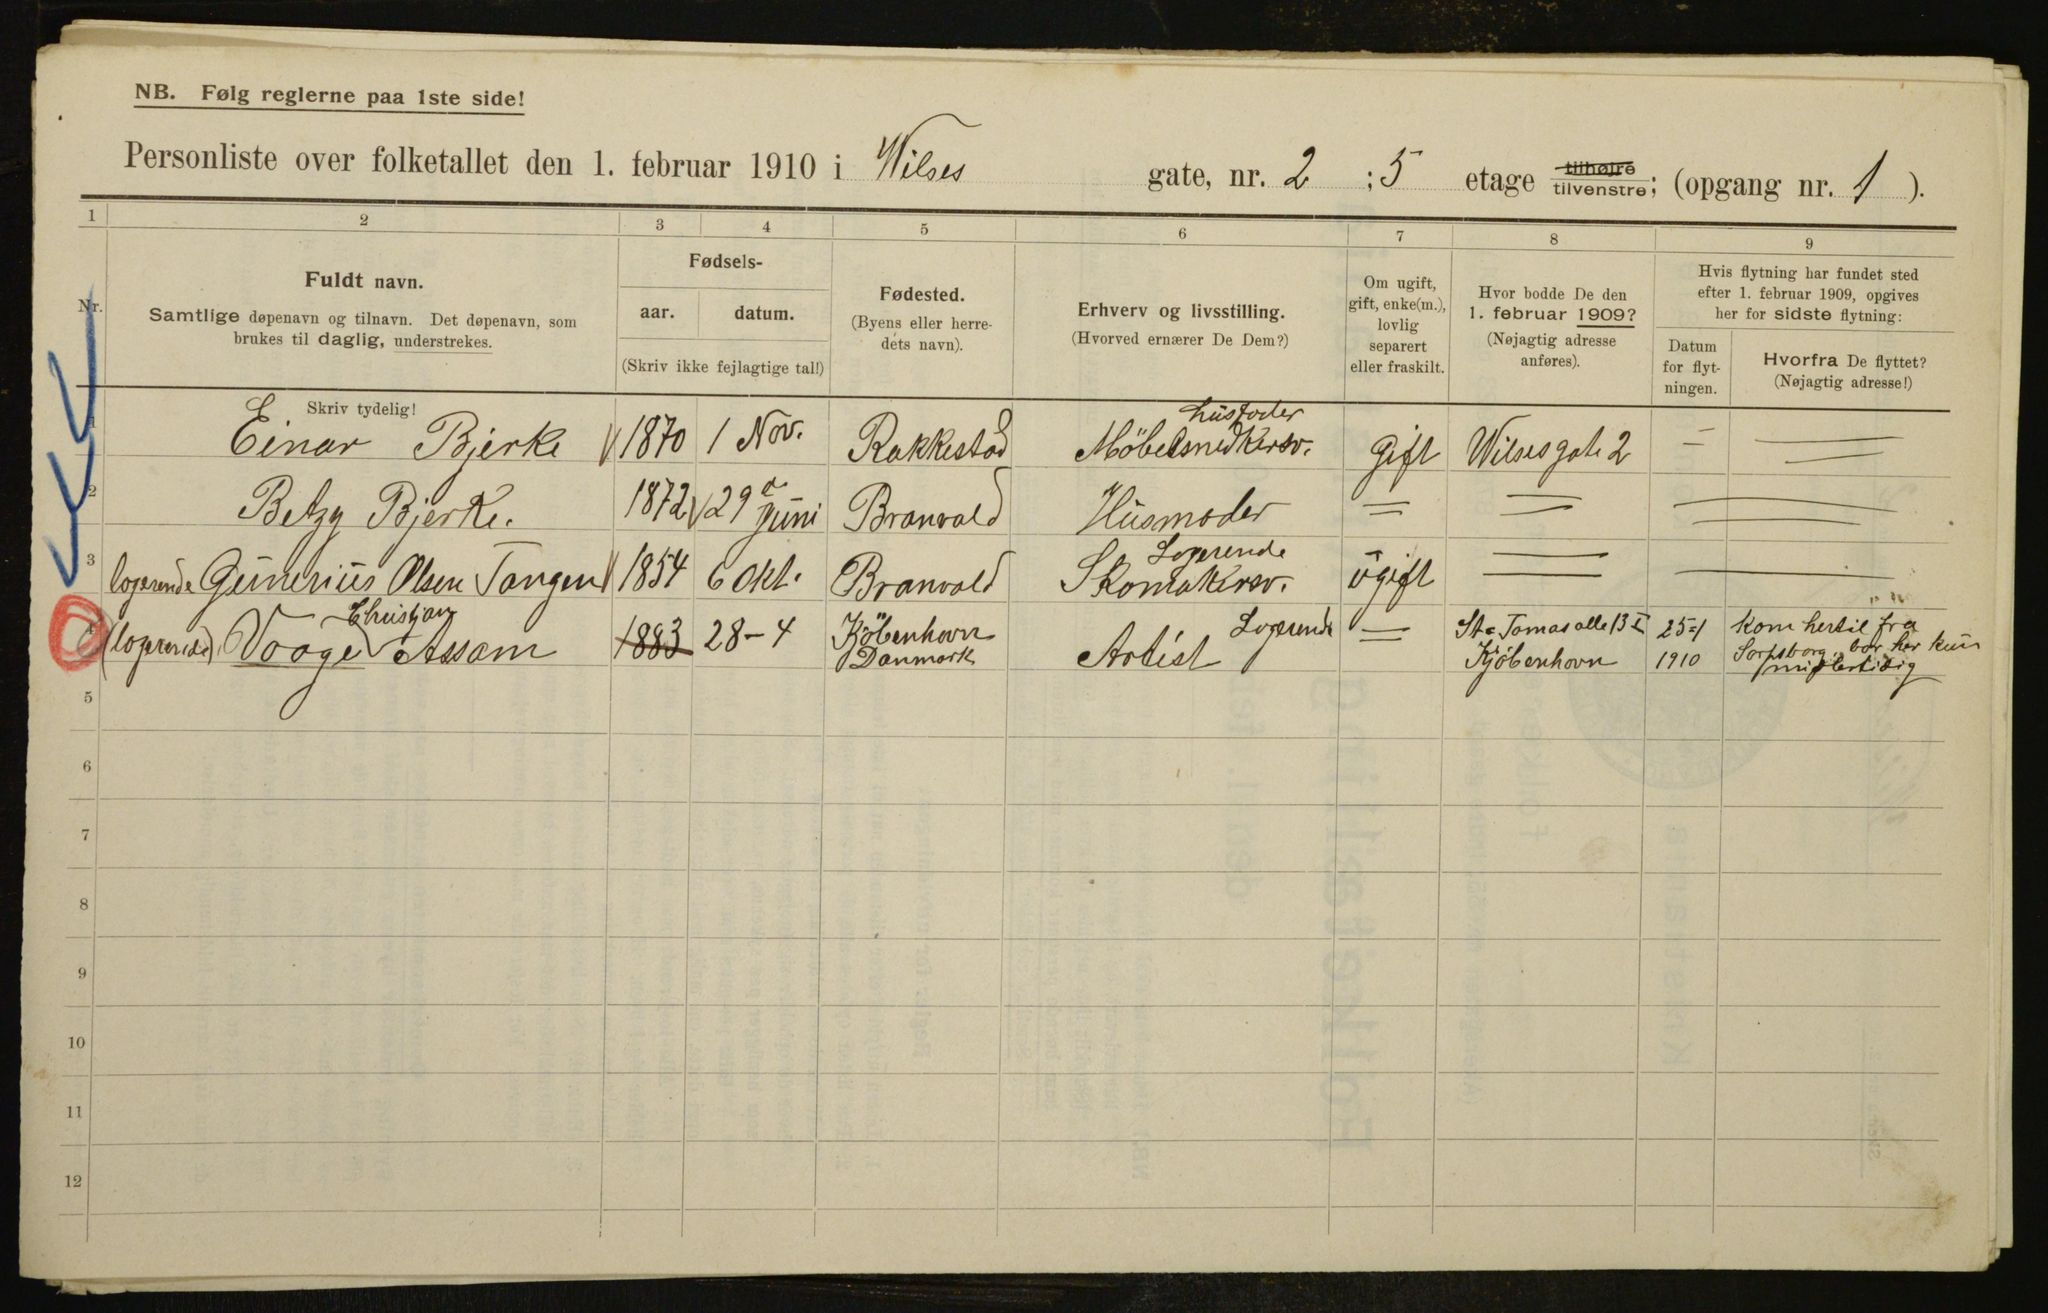 NB. Følg reglerne paa 1ste side!
Personliste over folketallet den 1. februar 1910 i Wilses gate, nr. 2 ; 5 etage tilhøjre tilvenstre; (opgang nr. 1 ).
1 2 3 4 5 6 7 8 9
Nr.
Fuldt navn.
Samtlige døpenavn og tilnavn. Det døpenavn, som
brukes til daglig, understrekes.
Skriv tydelig!
Fødsels-
aar. datum.
(Skriv ikke fejlagtige tal!)
Fødested.
(Byens eller herre-
dets navn).
Erhverv og livsstilling.
(Hvorved ernærer De Dem?)
Om ugift,
gift, enke(m.),
lovlig
separert
eller fraskilt.
Hvor bodde De den
1. februar 1909?
(Nøjagtig adresse
anføres).
Hvis flytning har fundet sted
efter 1. februar 1909, opgives
her for sidste flytning:
Datum
for flyt-
ningen.
Hvorfra De flyttet?
(Nøjagtig adresse!)
husfader
1 Einar Bjerke 1870 1 Nov. Rakkestad Møbelsnedkersv. Gift Wilsesgate 2 — =
2 Betzy Bjerke. 1872 29 d Juni Branvald Husmoder = =
Logerende
3 logerende Gunerius Olsen Tangen 1854 6 Okt. Branvald Skomakersv. ugift =
Christjan
4 (logerende) Vaage Assam 1883 28-4 Kjöbenhavn Danmark Artist Logerende = St Tomas alle 13 I Kjöbenhavn 25-1 1910 Kom hertil fra
Sarpsborg, bor her kun
midlertidig
5
6
7
8
9
10
11
12